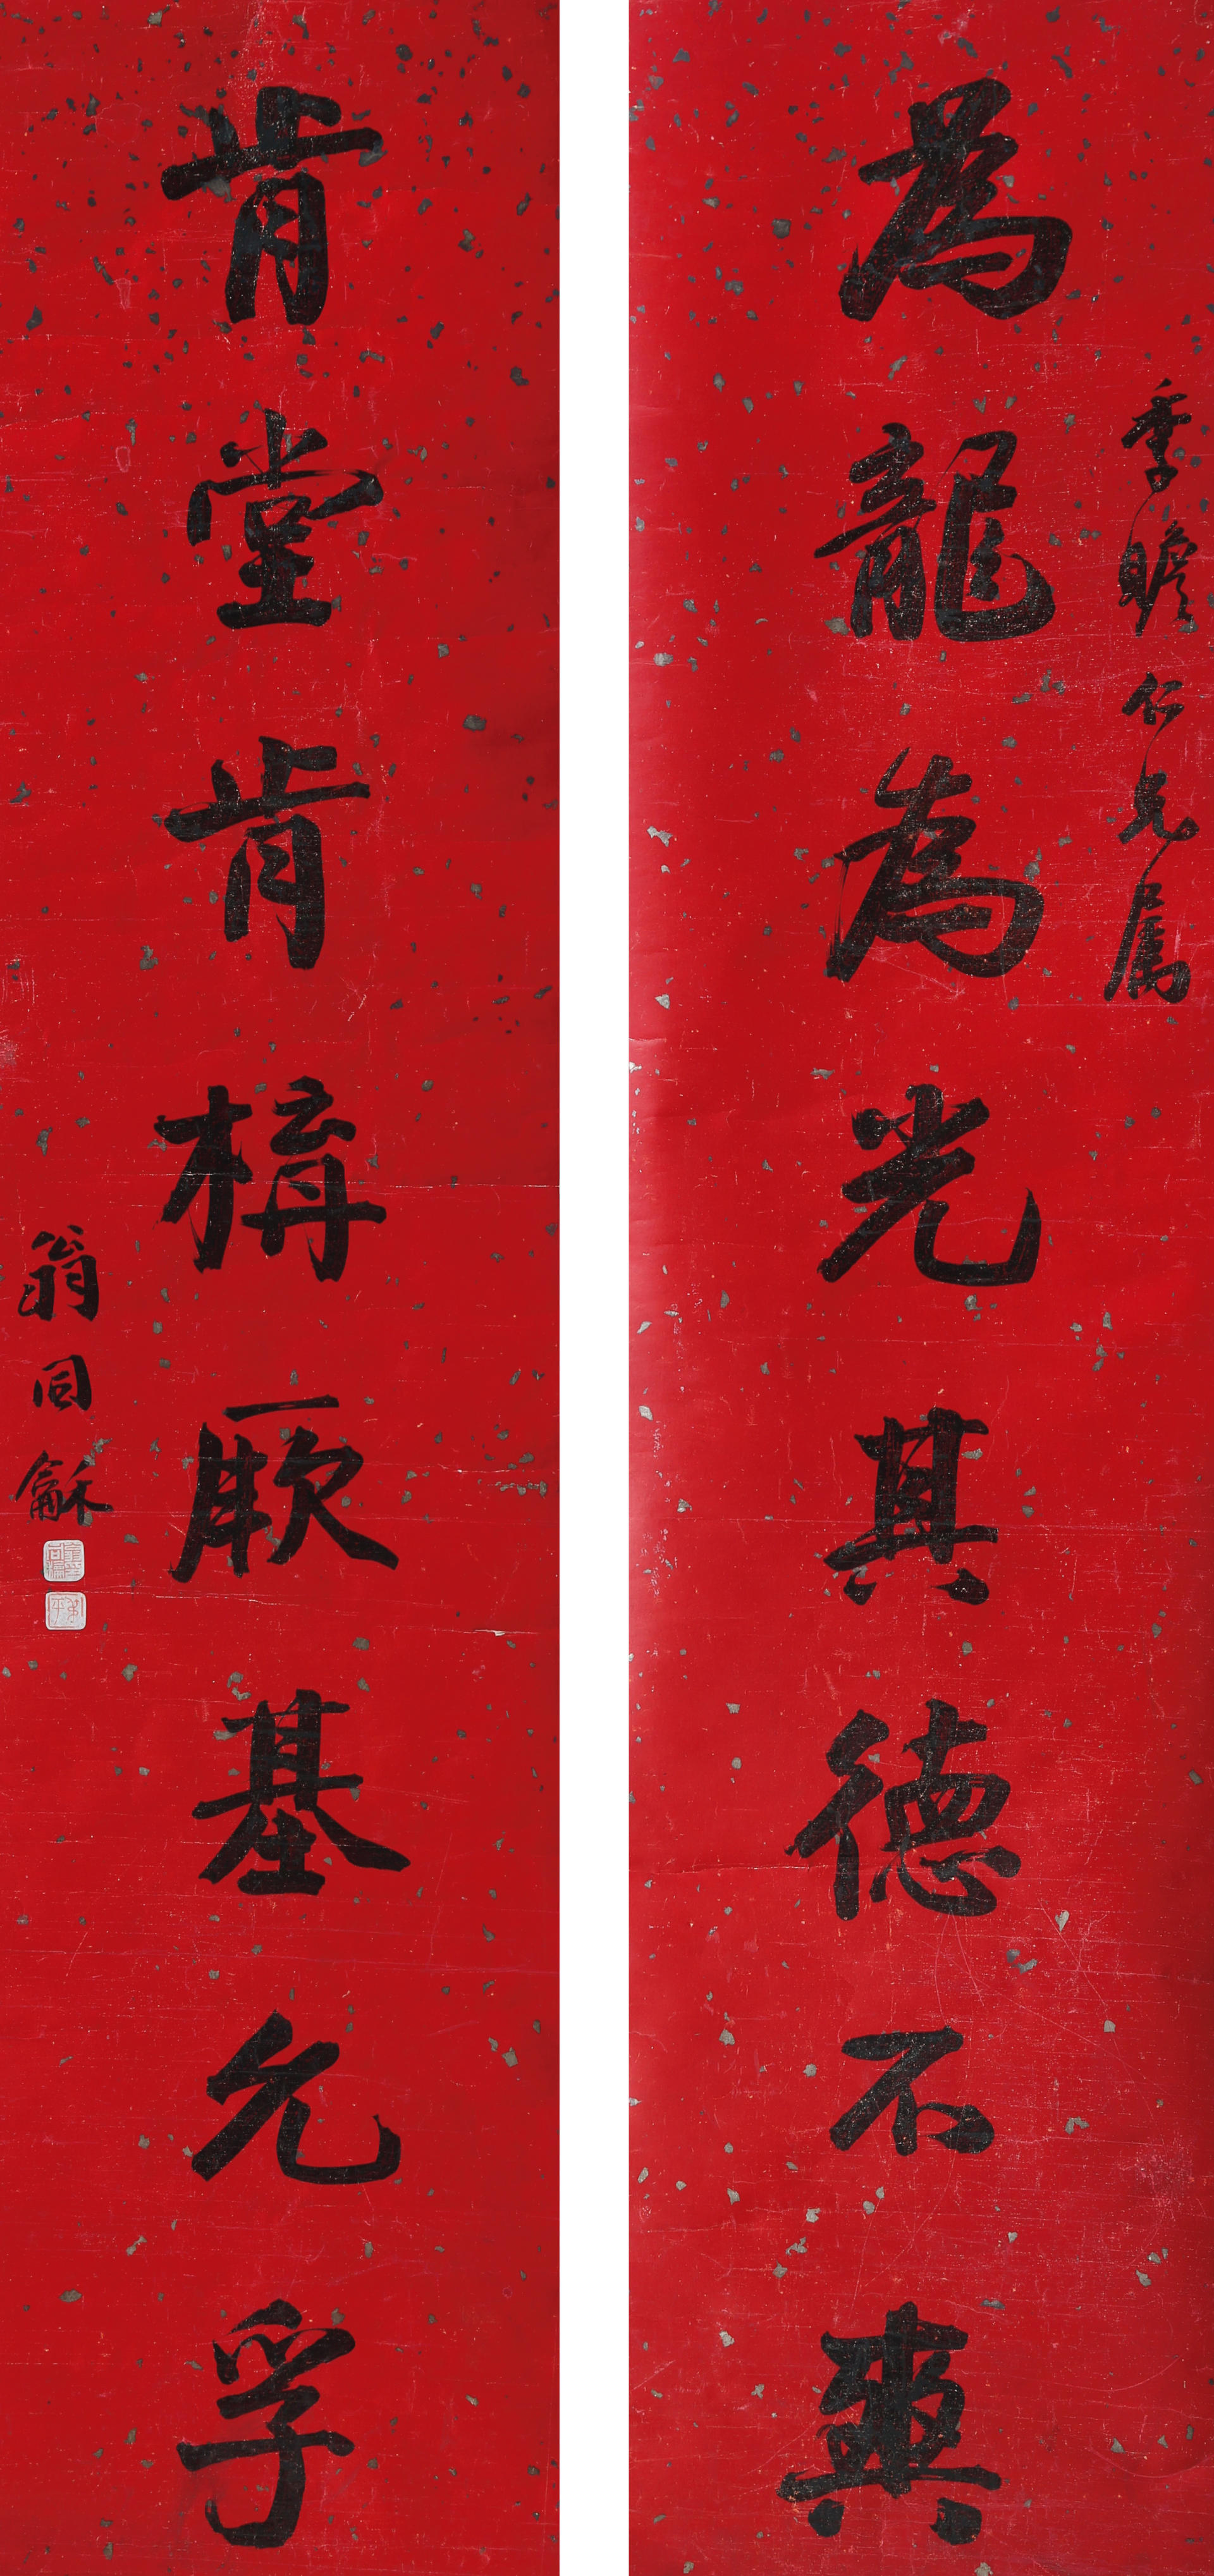 為龍為光其德不爽
季瞻仁兄属
肯堂肯構厥基允孚
翁同龢